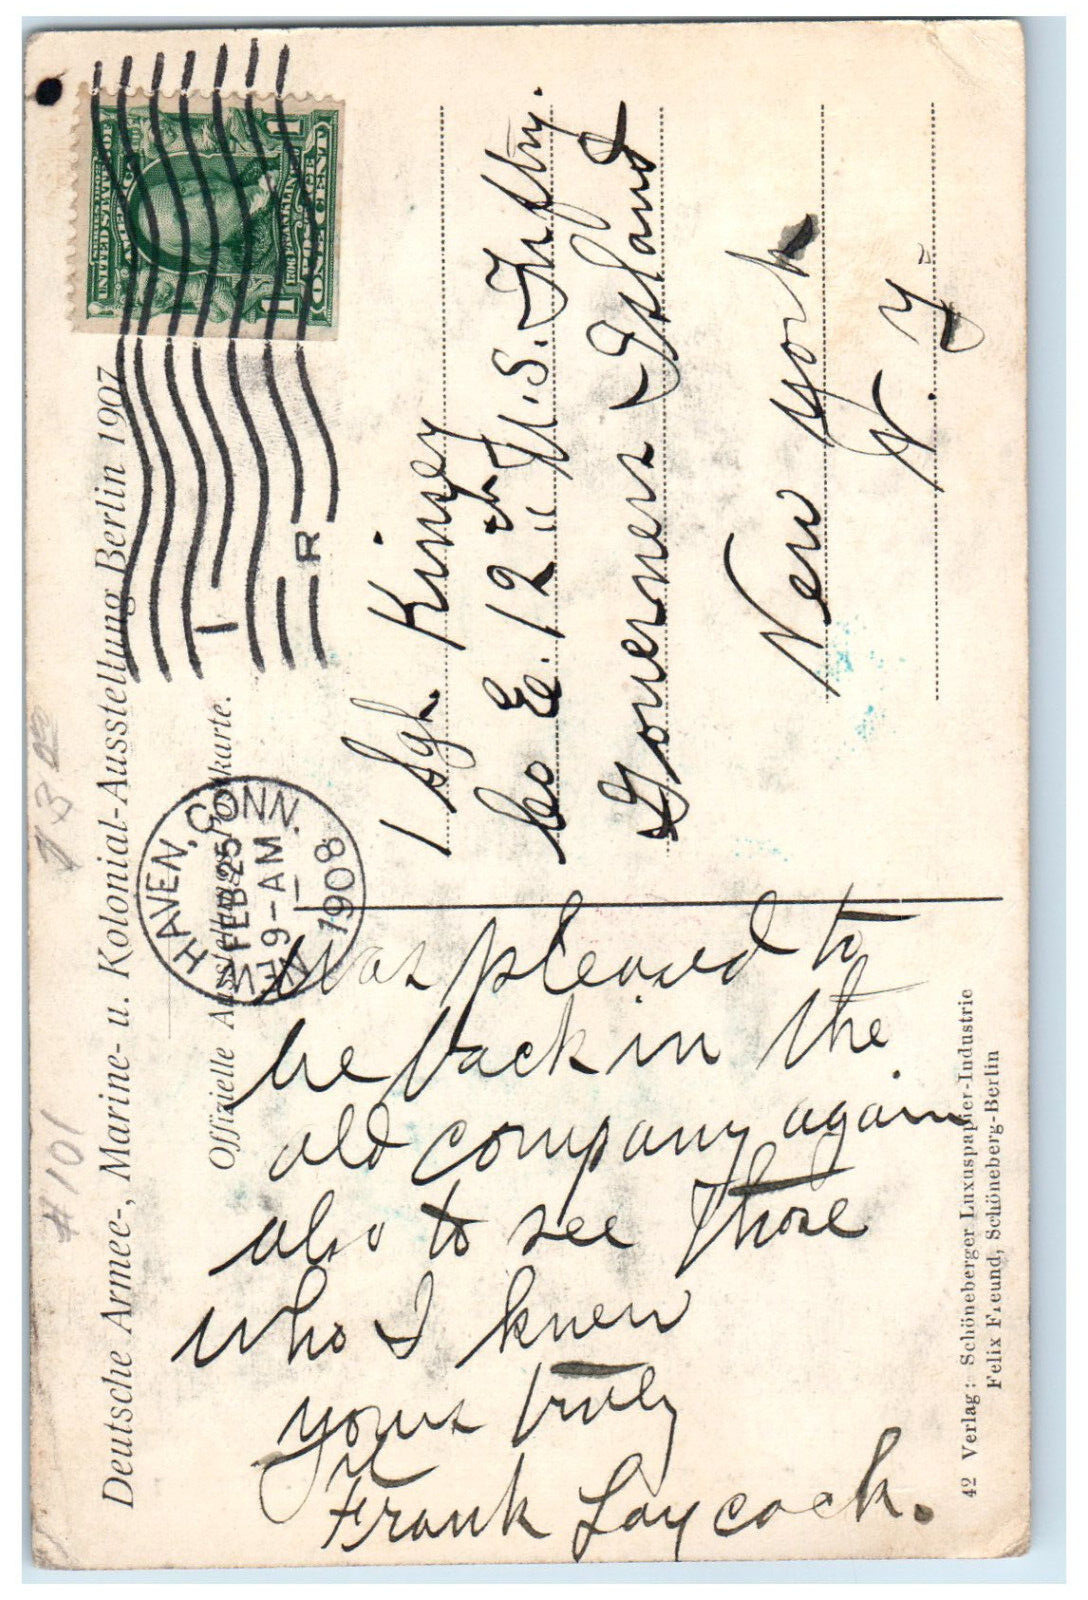 Deutsche Armee-, Marine- u. Kolonial-Ausstellung Berlin 1907
Offizielle Ausstellungs-Postkarte.
#101
13 00
NEW HAVEN, CONN.
FEB 25
9-AM
1908
1
R
UNITED STATES OF
AMERICA
1706 FRANKLIN
POSTAGE
1 ONE CENT 1
Was pleased to
be back in the
old company again
also to see those
who I knew
yours truly
Frank Laycock.
1 Sgt. Kinney
Co E. 12th U.S. Inftry.
Governers Island
New York
N. Y.
42 Verlag: Schöneberger Luxuspapier-Industrie
Felix Freund, Schöneberg-Berlin